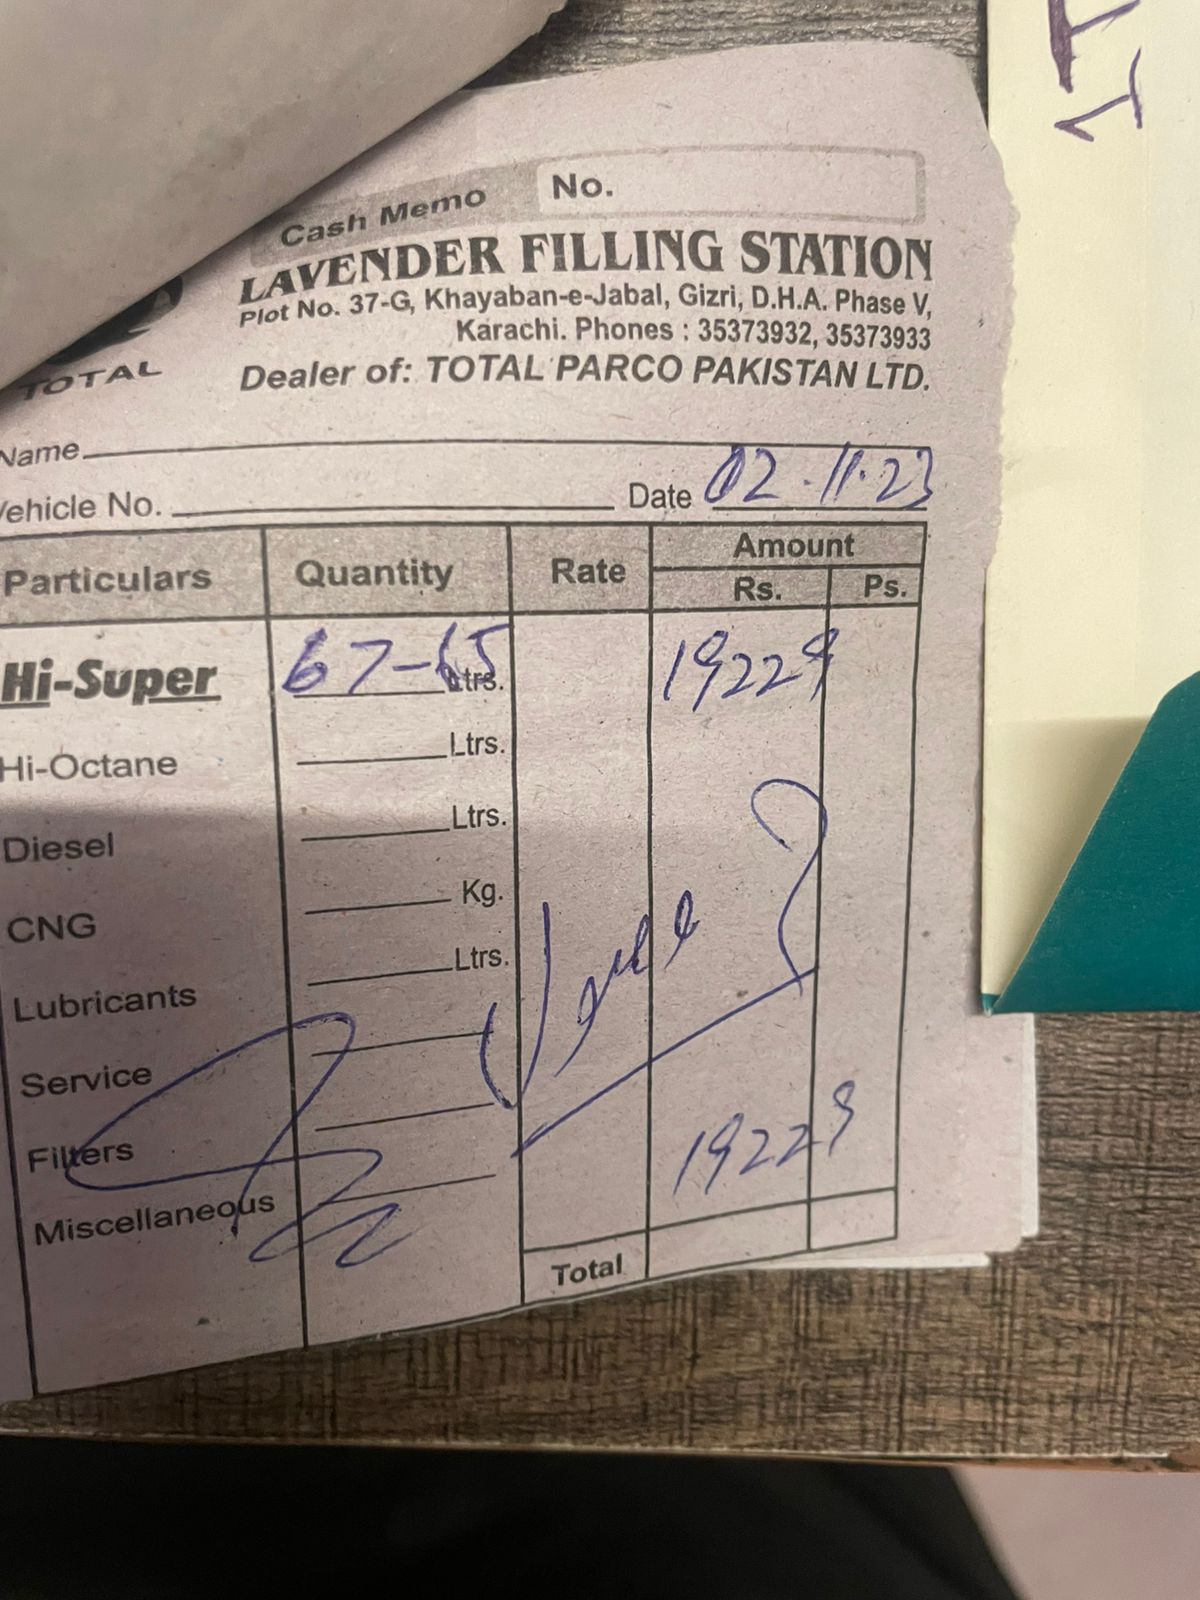 Cash Memo No.
LAVENDER FILLING STATION
Plot No. 37-G, Khayaban-e-Jabal, Gizri, D.H.A. Phase V,
Karachi. Phones : 35373932, 35373933
TOTAL
Dealer of: TOTAL PARCO PAKISTAN LTD.
Name
Vehicle No. Date 02.11.23
Particulars Quantity Rate Amount
Rs. Ps.
Hi-Super 67-65 Ltrs. 19229
Hi-Octane Ltrs.
Diesel Ltrs.
CNG Kg.
Lubricants Ltrs.
Service
Filters
Miscellaneous 19229
Total